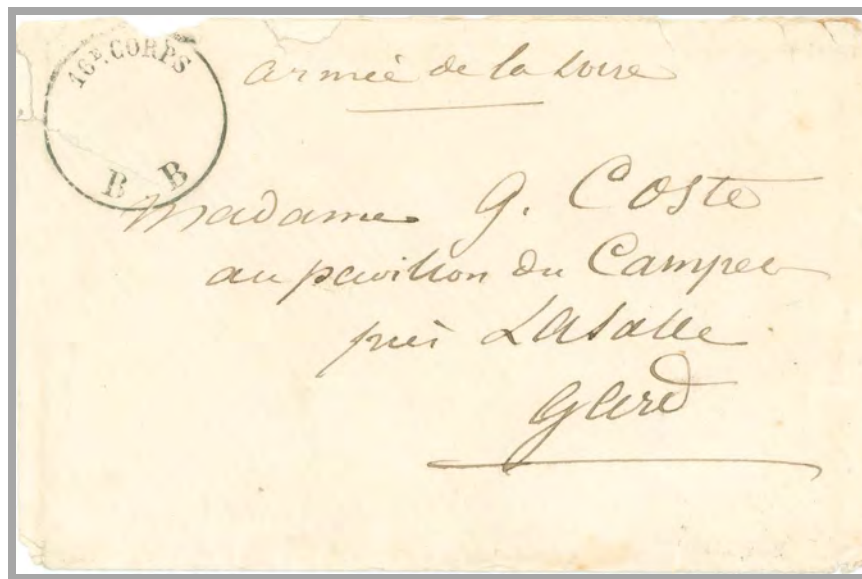 16E CORPS
B B
armée de la Loire
Madame G. Coste
au pavillon du Campet
près Lasalle
Gard